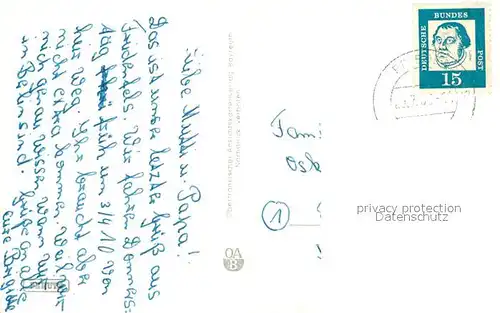 Liebe Mutti u. Papa!
Das ist unser letzter Gruß aus
Friedenfels. Wir fahren Donners-
tag früh um 3/4 10 von
hier weg. Ihr braucht aber
nicht extra kommen, weil wir
nicht genau wissen wann wir
in sind. Grüße an alle
eure Brigitte
OA
B
Fam
Osk
1
DEUTSCHE BUNDES POST
15
privacy protection
Datenschutz